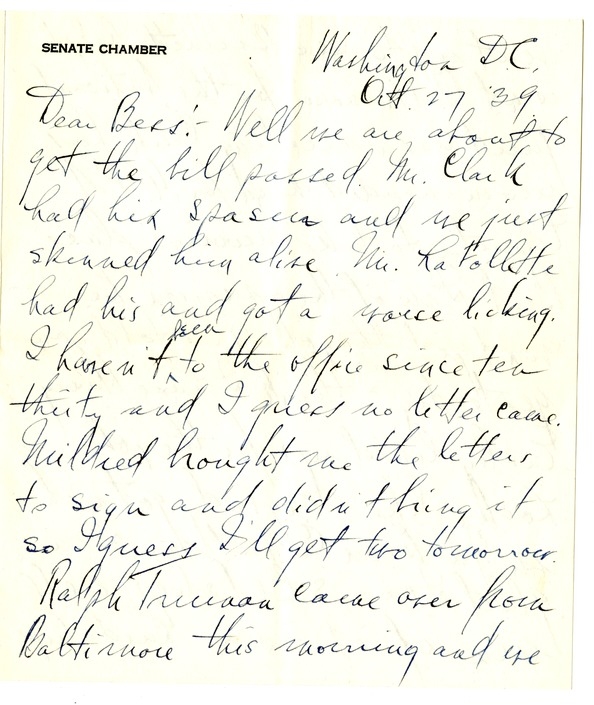 SENATE CHAMBER
Washington D.C.
Oct. 27 '39
Dear Bess:- Well we are about to
get the bill passed. Mr. Clark
had his spasm and we just
skinned him alive. Mr. LaFollette
had his and got a worse licking.
I haven't been to the office since ten
thirty and I guess no letter came.
Mildred brought me the letters
to sign and didn't bring it
so I guess I'll get two tomorrow.
Ralph Truman came over from
Baltimore this morning and we